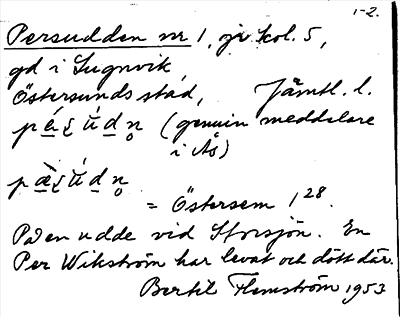 1-2.
Persudden nr 1, gr kol. 5,
gd i Lugnvik,
Östersunds stad, Jämtl. l.
(genuin meddelare
i Ås)
= Östersem 1 28.
På en udde vid Storsjön. En
Per Wikström har levat och dött där.
Bertil Flemström 1953